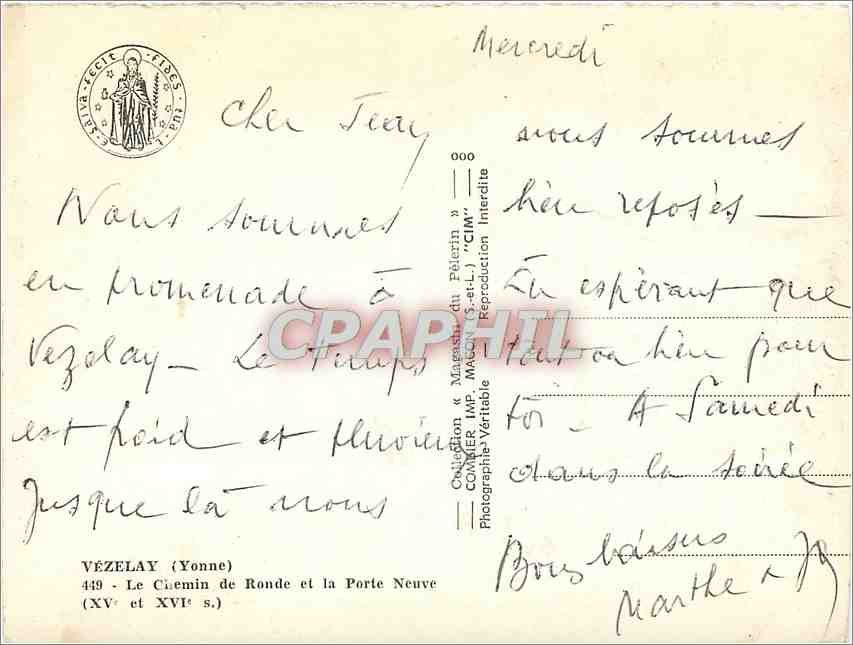 Mercredi
E · SALVA · FECIT · FIDES · TUA · T
Cher Jean
Nous sommes
en promenade à
Vezelay — Le temps
est froid et pluvieux
Jusque là nous
VÉZELAY (Yonne)
449 - Le Chemin de Ronde et la Porte Neuve
(XVe et XVIe s.)
ooo
Collection « Magasin du Pèlerin »
COMBIER IMP. MACON (S.-et-L.) "CIM"
Photographie Véritable Reproduction Interdite
nous sommes
bien reposés —
En espérant que
tout va bien pour
toi — A Samedi
dans la soirée
Bons baisers
Marthe
CPAPHIL